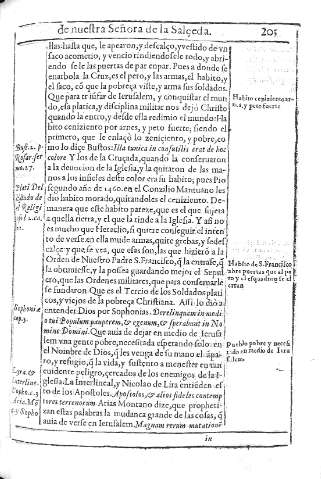 de nuestra Señora de la Salçeda. 205
llas hasta que le apearon, y descalço, y vestido de vn
saco acometio, y vencio rindiendosele todo, y abri-
endo se le las puertas de par en par. Pues a donde se
enarbola la Cruz, es el pero, y las armas, el habito, y
el saco, cō que la pobreça viste, y arma sus soldados.
Que para ir a
Ierusalem, y conquistar el mun-
do, esa platica, y disciplina militar nos dejò Christo
quando la entro, y desde ella redimio el mundo: Ha
bito ceniziento por arnes, y peto fuerte; siendo el
primero, que le enlaçò lo zeniziento, y pobre, co-
mo lo dice Bustos: Illa tunica in consutilis erat de hoc
colore Y los de la Cruçada, quando la conseruaron
a la deuocion de la Iglesia, y la quitaron de las ma-
nos a los infieles deste color era su habito; pues Pio
segundo año de 1460. en el Conzilio Mantuano les
dio habito morado, quitandoles el ceniziento. De-
manera que este habito pareze, que es el que sujeta
a quella tierra, y el que la rinde a la Iglesia. Y asi no
es mucho que Heraclio, si quiere conseguir el inten
to de verse en ella mude armas, quite grebas, y se des
calçe y que se vea, que esas son, las que hizieō a la
Orden de Nuestro Padre S. Francisco, q̃ la entrase, q̃
la obtuuiese, y la posea guardando mejor el Sepul
cro, que las Ordenes militares, que para conseruarle
se fundaron Que es el Tercio de los Soldados plati
cos, y viejos de la pobreça Christiana. Asi lo dio a
entender Dios por Sophonias. Derelinquam in medi
o tui Populum pauperem, & egenum, & sperabunt in No
mine Domini. Que auia de dejar en medio de Ierusa
lem vna gente pobre, necesitada esperando solo en
el Nombre de Dios, q̃ les venga de su mano el ápa-
ro, y refugio, q̃ la vida, y sustento a menester en tan
euidente peligro, çercados de los enemigos de la Ï-
glesia. La Interlineal, y Nicolao de Lira entiēden es
to de los Apostoles. Apostolos, & alios fideles contemp
tores terrenorum Arias Montano dize, que propheti-
zan estas palabras la mudança grande de las cosas, q̃
auia de verse en Ierusalem. Magnam rerum mutationē
in
Habito ceniziento ar-
nes, y peto fuerte
Habito de S. Francisco
abre puertas que al pe
to y el espaldar se ce
rraron
Pueblo pobre y neces
sitado en medio de Ieru
salem
Bust. 2. p.
Rosar. ser
no. 27.
Sophoniæ
cap. 3.
Lyra. &
Interline.
Soph. c. 3
Aria. Mō